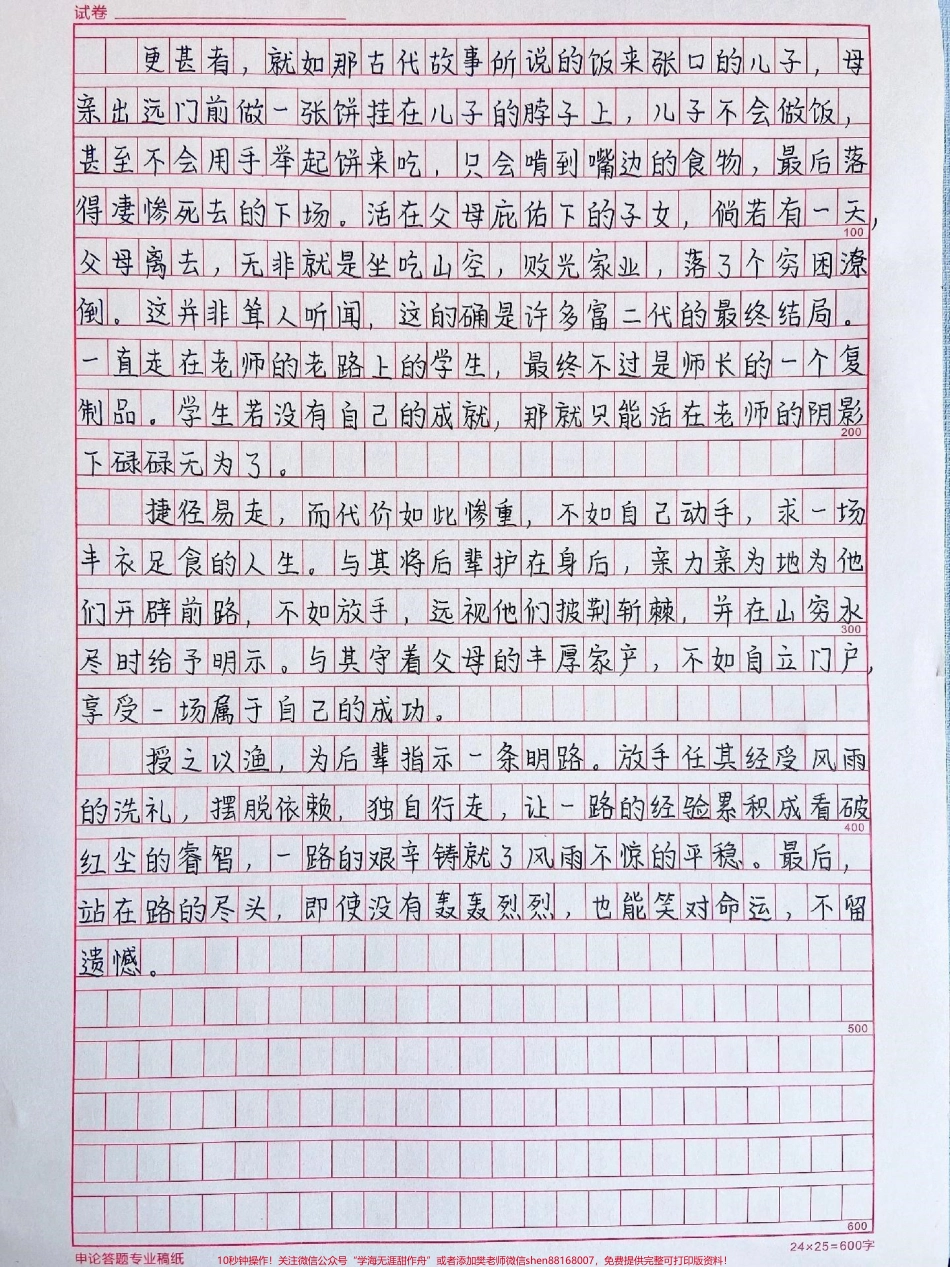 试卷
更甚者，就如那古代故事所说的饭来张口的儿子，母
亲出远门前做一张饼挂在儿子的脖子上，儿子不会做饭，
甚至不会用手举起饼来吃，只会啃到嘴边的食物，最后落
得凄惨死去的下场。活在父母庇佑下的子女，倘若有一天，
100
父母离去，无非就是坐吃山空，败光家业，落了个穷困潦
倒。这并非耸人听闻，这的确是许多富二代的最终结局。
一直走在老师的老路上的学生，最终不过是师长的一个复
制品。学生若没有自己的成就，那就只能活在老师的阴影
200
下碌碌无为了。
捷径易走，而代价如此惨重，不如自己动手，求一场
丰衣足食的人生。与其将后辈护在身后，亲力亲为地为他
们开辟前路，不如放手，远视他们披荆斩棘，并在山穷水
300
尽时给予明示。与其守着父母的丰厚家产，不如自立门户，
享受一场属于自己的成功。
授之以渔，为后辈指示一条明路。放手任其经受风雨
的洗礼，摆脱依赖，独自行走，让一路的经验累积成看破
400
红尘的睿智，一路的艰辛铸就了风雨不惊的平稳。最后，
站在路的尽头，即使没有轰轰烈烈，也能笑对命运，不留
遗憾。
500
600
24×25=600字
申论答题专业稿纸
10秒钟操作！关注微信公众号“学海无涯甜作舟”或者添加樊老师微信shen88168007，免费提供完整可打印版资料！